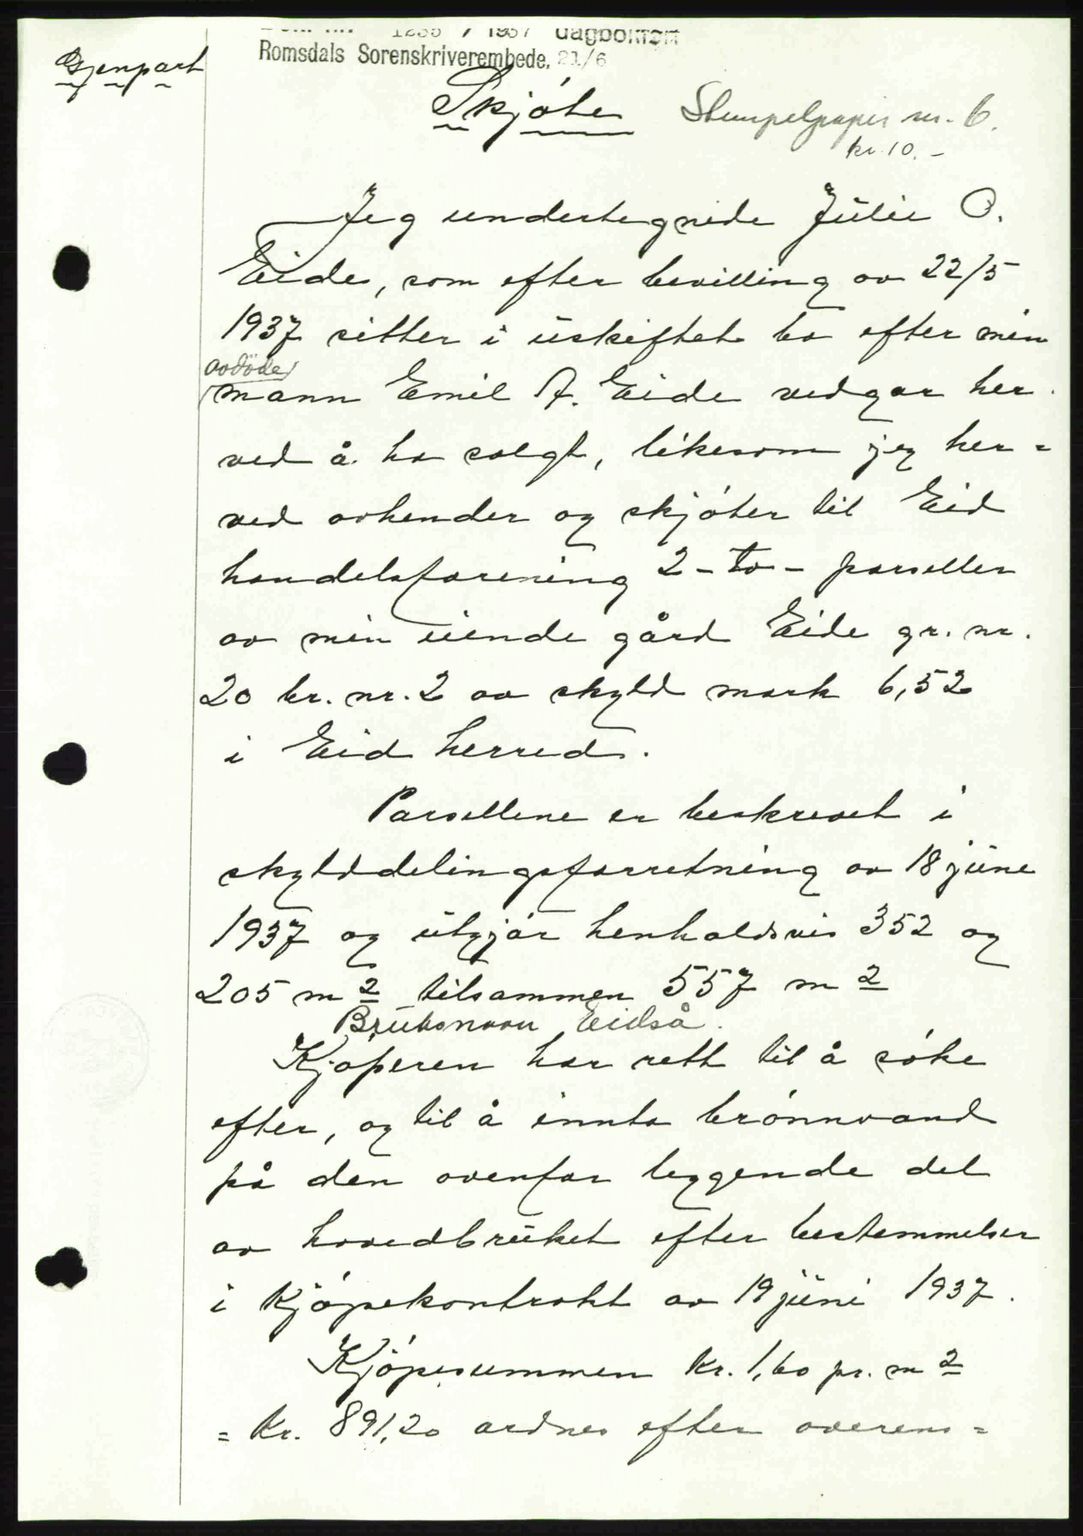 1235 / 1937 dagboken
Romsdals Sorenskriverembede, 21/6
Gjenpart
Skjøte
Stempelpapir nr. 6.
kr. 10.-
Jeg undertegnede Julie O.
Eide, som efter bevilling av 22/5
1937 sitter i uskiftet bo efter min
avdöde
mann Emil A. Eide vedgar her
ved å ha solgt, likesom jeg her=
ved avhender og skjøter til Eid
handelsforening 2 - to - parseller
av min eiende gård Eide gr. nr.
20 br. nr. 2 av skyld mark 6,52
i Eid herred.
Parsellene er beskrevet i
skylddelingsforretning av 18 june
1937 og utgjør henholdsvis 352 og
205 m2 tilsammen 557 m2
Bruksnavn Eidså.
Kjøperen har rett til å søke
efter, og til å innta brønnvand
på den ovenfor leggende del
av hovedbruket efter bestemmelser
i kjøpekontrakt av 19 juni 1937.
Kjøpesummen kr. 1,60 pr. m2
= kr. 891,20 ordnes efter overens=